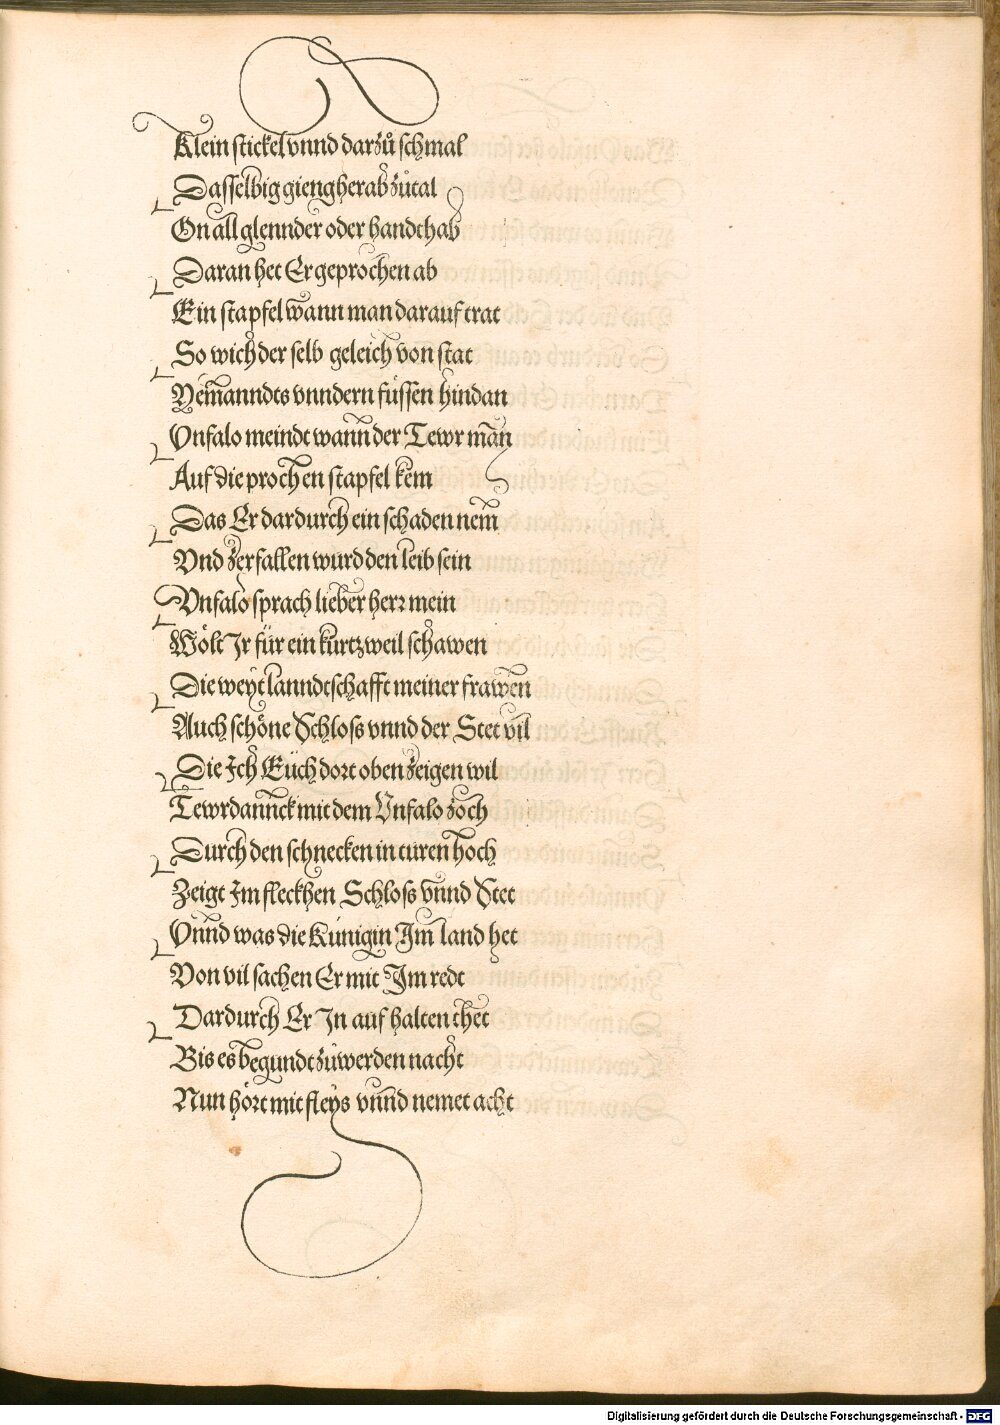 Klein stickel vnnd darzů schmal
Dasselbig gieng herab zůtal
On all glennder oder handthab
Daran het Er geprochen ab
Ein stapfel wann man darauf trat
So wich der selb geleich von stat
Yemanndts vnndern füssen hindan
Vnfalo meindt wann der Tewr man
Auf die prochen stapfel kem
Das Er dardurch ein schaden nem
Vnd zerfallen wurd den leib sein
Vnfalo sprach lieber herr mein
Wölt Jr für ein kurtzweil schawen
Die weyt lanndtschafft meiner frawen
Auch schöne Schloss vnnd der Stet vil
Die Ich Euch dort oben zeigen wil
Tewrdannck mit dem Vnfalo zoch
Durch den schnecken in turen hoch
Zeigt Im fleckhen Schloss vnnd Stet
Vnnd was die Künigin Im land het
Von vil sachen Er mit Im redt
Dardurch Er In auf halten thet
Bis es begundt zůwerden nacht
Nun hört mit fleys vnnd nemet acht
Digitalisierung gefördert durch die Deutsche Forschungsgemeinschaft - DFG